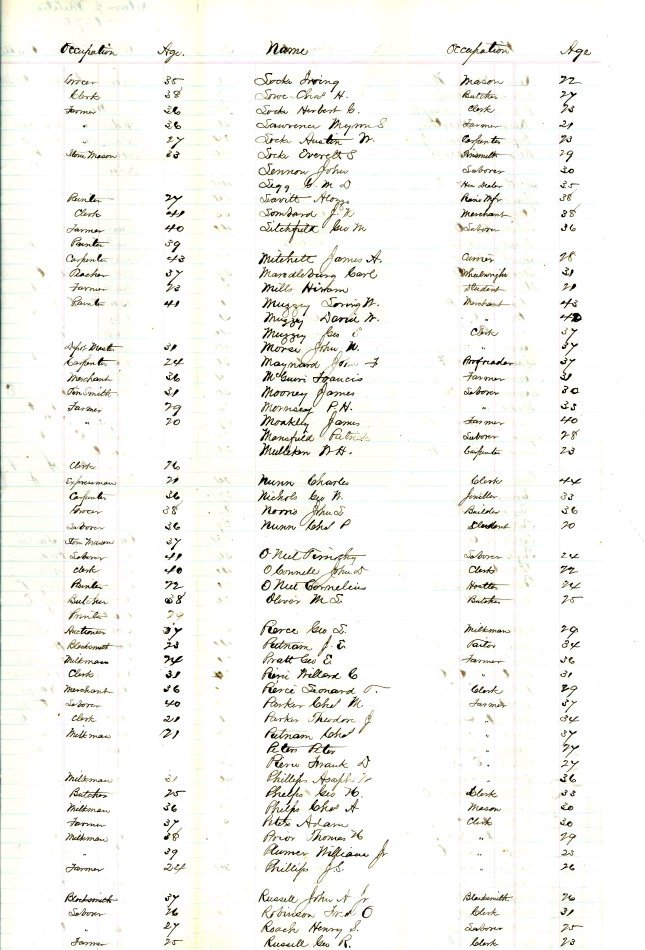 Occupation Age. Name Occupation Age
Grocer 35 Locke Irving Mason 22
Clerk 38 Lowe Chas H. Butcher 27
Farmer 36 Locke Herbert G. Clerk 23
" 36 Lawrence Myron S Farmer 21
" 27 Locke Austin W. Carpenter 23
Stone Mason 33 Locke Everett S 29
Lennon John Laborer 30
Legg G. M. D 35
Painter 27 Leavitt Alonzo Piano Mfr 38
Clerk 41 Lombard J. F. Merchant 38
Farmer 40 Litchfield Geo M Laborer 36
Painter 39
Carpenter 43 Mitchell James A. Currier 28
37 Carl Wheelwright 31
Farmer 23 Mills Hiram Student 21
Painter 41 Muzzey Loring W. Merchant 43
Muzzey David W. " 42
Muzzey Geo E Clerk 37
Depot Master 31 Morse John N. " 37
Carpenter 24 Maynard John F 37
Merchant 36 McGuire Francis Farmer 31
Tin Smith 31 Mooney James Laborer 30
Farmer 29 P. H. " 33
" 20 Moakley James Farmer 40
Mansfield Patrick Laborer 28
Mulliken W. H. Carpenter 23
Clerk 26
Expressman 21 Nunn Charles Clerk 44
Carpenter 36 Nichols Geo W. 33
Grocer 38 Norris John S. Builder 36
Laborer 36 Nunn Chas P Student 20
Stone Mason 37
Laborer 41 O Neil Timothy Laborer 24
Clerk 40 O Connell John D Clerk 22
Painter 22 O Neil Cornelius Hostler 24
Butcher 38 Oliver M. S. Butcher 25
Printer 29
Auctioneer 37 Pierce Geo L. Milkman 29
Blacksmith 23 Putnam J. E. 34
Milkman 24 Pratt Geo E. Farmer 36
Clerk 31 Pierce Willard C " 31
Merchant 36 Pierce Leonard T. Clerk 29
Laborer 40 Parker Chas M. Farmer 37
Clerk 21 Parker Theodore J " 34
Milkman 21 Putnam Chas " 37
Peters Peter " 27
Pierce Frank D " 27
Milkman 31 Phillips " 36
Butcher 25 Phelps Geo H. Clerk 33
Milkman 36 Phelps Chas A Mason 30
Farmer 37 Peters Adam Clerk 30
Milkman 38 Prior Thomas H " 29
" 39 Plumer William Jr " 23
Farmer 24 Phillips J. S. " 26
Blacksmith 37 Russell John A Jr Blacksmith 26
Laborer 26 Robinson Fred O Clerk 31
" 27 Roach Henry S. Laborer 25
Farmer 25 Russell Geo R. Clerk 23